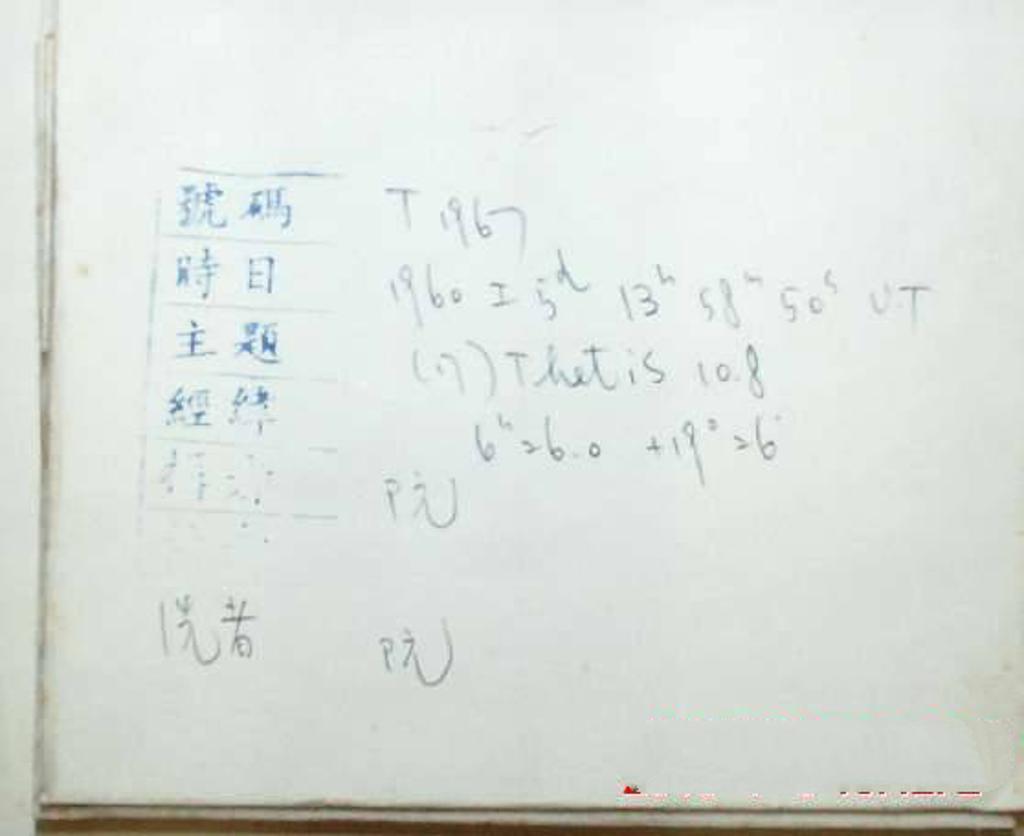 號碼 T 1967
時日 1960 I 5d 13h 58m 50s UT
主題 (17) Thetis 10.8
經緯 6h = 6.0 +19° = 6'
阮
阮